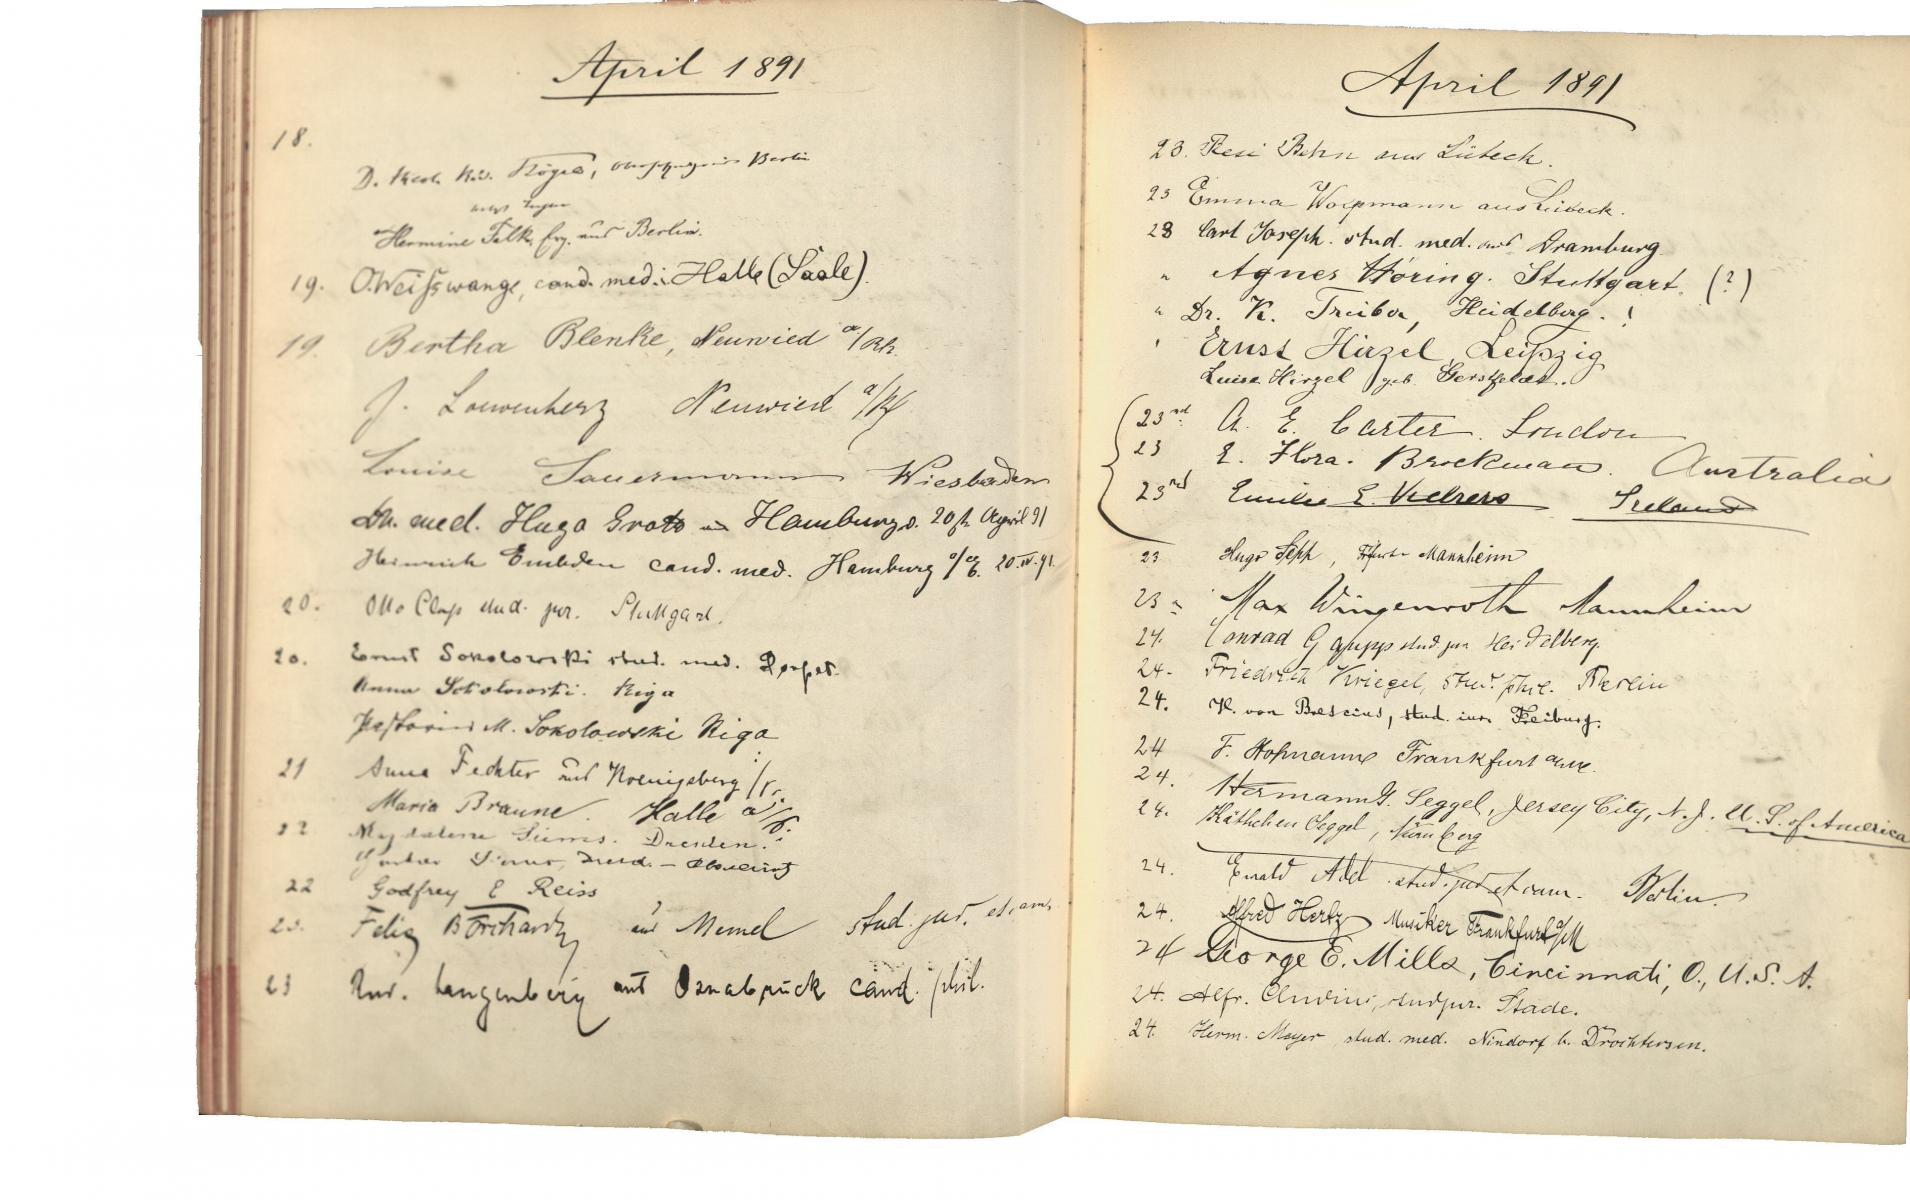 April 1891
18.
D. Rud. Kögel, Berlin
Hermine Falk, aus Berlin.
19. O. Weißwange, cand. med. Halle (Saale).
19. Bertha Blenke, Neuwied a/Rh.
J. Loewenherz Neuwied a/Rh
Louise Sauermann Wiesbaden
Dr. med. Hugo Groth Hamburg d. 20st. April 91
Heinrich Embden cand. med. Hamburg 20.IV.91.
20. Otto Clap stud. jur. Stuttgart.
20. Ernst Sokolowski stud. med. Dorpat.
Anna Sokolowski. Riga
Pastorin M. Sokolowski Riga
21 Anna Fechter aus Koenigsberg i/Pr.
Maria Braune. Halle a/S.
22 Magdalene Siems. Dresden.
Dresd.
22 Godfrey E Reiss
23. Felix Borchardt aus Memel stud. jur. et. cam.
23 Rud. Langenberg aus Osnabrück cand. phil.
April 1891
23. Resi Behn aus Lübeck.
23 Emma Woepmann aus Lübeck.
23 Carl Joseph. stud. med. aus Dramburg.
" Agnes Höring. Stuttgart. (?)
" Dr. K. Treiber, Heidelberg. !
' Ernst Hirzel, Leipzig
Luise Hirzel geb. Gerstfeldt.
23rd A. E. Carter. London
23 E. Flora. Brockman. Australia
23rd Emilie E. Ireland
23 Hugo Seph, Mannheim
23 " Max Wingenroth Mannheim
24. Conrad Gaupp stud. jur. Heidelberg.
24. Friedrich Kriegel, stud. phil. Berlin
24. K. von Brescius, stud. iur. Freiburg.
24 F. Hofmann Frankfurt a/M.
24. Hermann G. Seggel, Jersey City, N. J. U. S. of America
24. Käthchen Seggel, Nürnberg
24. Ewald Adel stud. jur. et cam. Berlin.
24. Alfred Hertz Musiker Frankfurt a/M
24 George E. Mills, Cincinnati, O., U. S. A.
24. Alfr. stud jur. Stade.
24. Herm. Meyer stud. med. Nindorf b. Drochtersen.